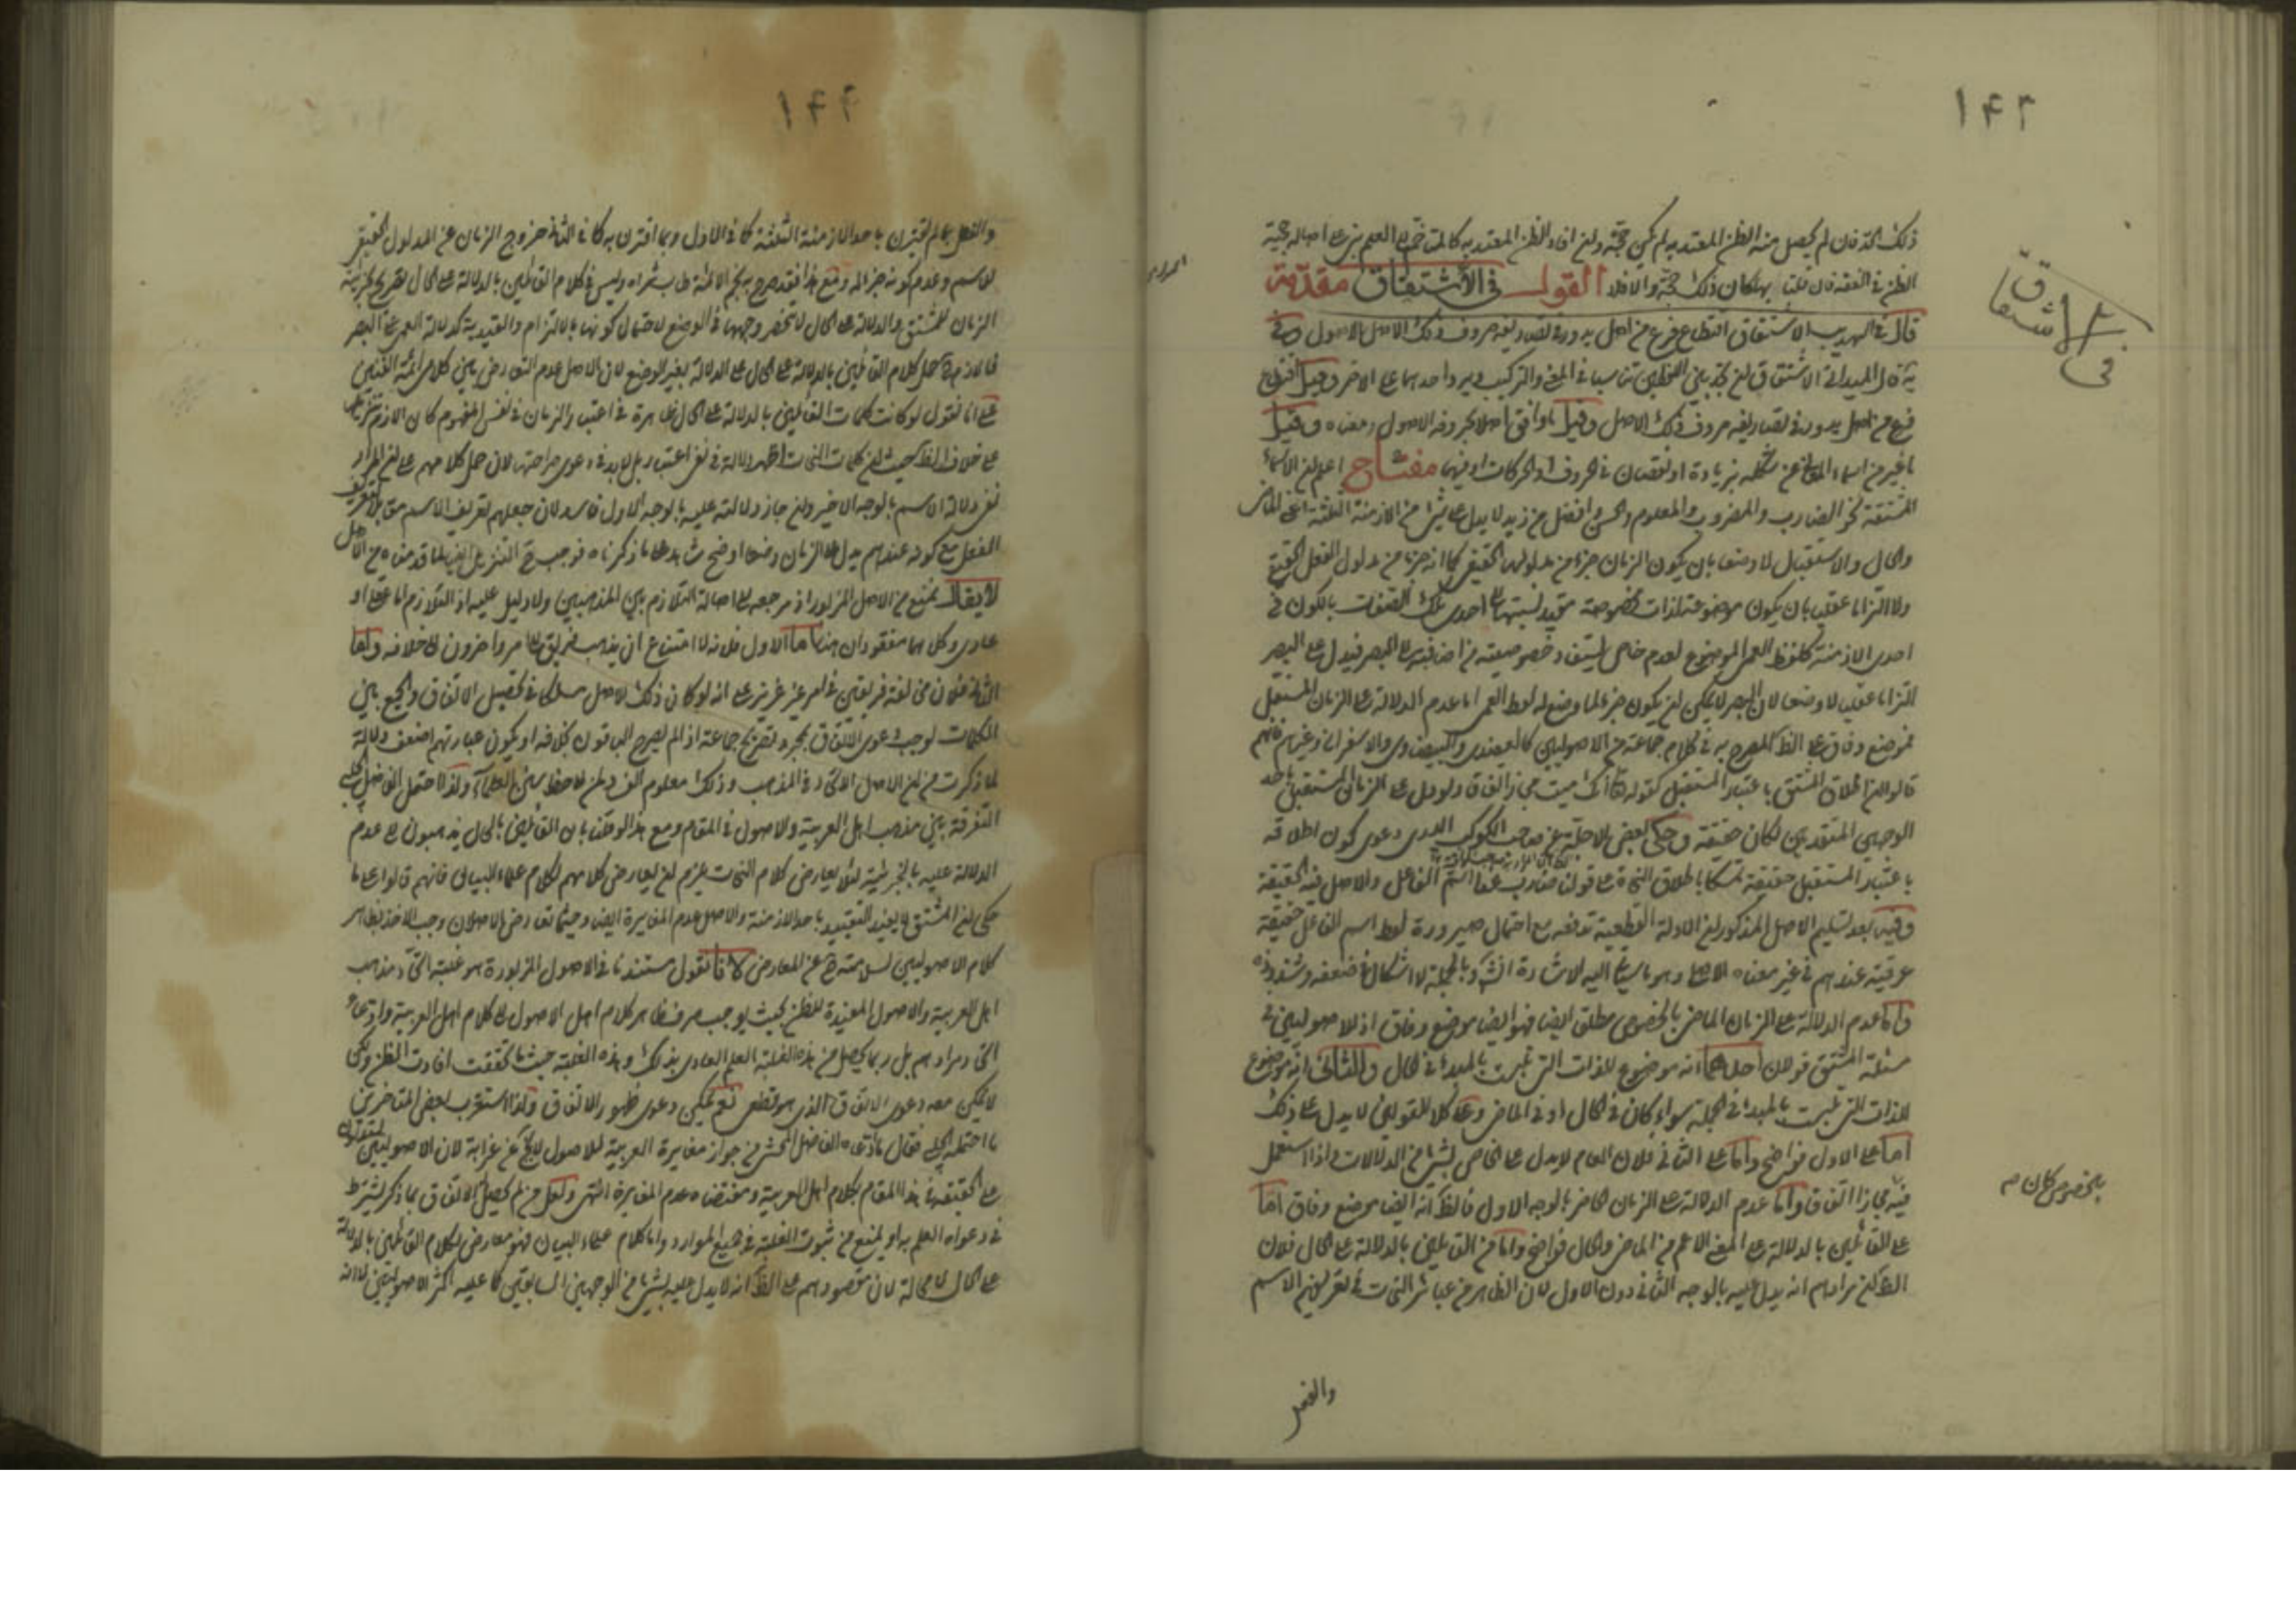 ١۴٣
في الاشتقاق
ذلك الحد فان لم يحصل منه الظن المعتد به لم يكن حجة وان افاد الظن المعتد به كالمتاخم للعلم بنى على اصالة حجية
الظن في اللغة فان قلنا بها كان ذلك حجة والا فلا القول في الاشتقاق مقدمة
قال في التهذيب الاشتقاق اقتطاع فرع من اصل يدور في تصاريفه حروف ذلك الاصل الاصول وفي
قال الميداني الاشتقاق ان تجد بين اللفظين تناسبا في المعنى والتركيب فيرد احدهما على الاخر وقيل اقتطاع
فرع من اصل يدور في تصاريفه حروف ذلك الاصل وقيل ما وافق اصلا بحروفه الاصول ومعناه وقيل
ما غير من اسماء المعاني عن شكله بزيادة او نقصان في الحروف او الحركات او فيهما مفتاح اعلم ان الاسماء
المشتقة نحو الضارب والمضروب والمعلوم والحسن وافضل من زيد لا يدل على شيء من الازمنة الثلثة اعني الماضي
والحال والاستقبال لا وضعا بان يكون الزمان جزء من مدلولها الحقيقي كما انه جزء من مدلول الفعل الحقيقي
ولا التزاما عقليا بان يكون موضوعة لذات مخصوصة مقيد نسبتها الى احدى تلك الصفات بالكون في
احدى الازمنة كلفظ العمى الموضوع لعدم خاص يستفاد خصوصيته من اضافته الى البصر فيدل على البصر
التزاما عقليا لا وضعا لان البصر لا يمكن ان يكون جزء لما وضع له لفظ العمى اما عدم الدلالة على الزمان المستقبل
فموضع وفاق على الظ المصرح به في كلام جماعة من الاصوليين كالعضدي والبيضاوي والاسفراني وغيرهم فانهم
قالوا ان اطلاق المشتق باعتبار المستقبل كقوله تع انك ميت مجاز اتفاقا ولو دل على الزمان المستقبل باحد
الوجهين المتقدمين لكان حقيقة وحكى بعض الاجلة عن صاحب الكوكب الدري دعوى كون اطلاقه
باعتبار المستقبل حقيقة تمسكا باطلاق النحاة على قولنا ضارب غدا اسم الفاعل والاصل فيه الحقيقة
وفيه بعد تسليم الاصل المذكور ان الادلة القطعية تدفعه مع احتمال صيرورة لفظ اسم الفاعل حقيقة
عرفية عندهم في غير معناه الاصلي وهو ما سياتي اليه الاشارة انش وبالجملة لا اشكال في ضعفه وشذوذه
واما عدم الدلالة على الزمان الماضي بالخصوص مطلق ايضا فهو ايضا موضع وفاق اذ للاصوليين في
مسئلة المشتق قولان احدهما انه موضوع للذات التي تلبست بالمبدء في الحال والثاني انه موضوع
للذات التي تلبست بالمبدء في الجملة سواء كان في الحال او في الماضي وعلى كلا القولين لا يدل على ذلك
اما على الاول فواضح واما على الثاني فلان العام لا يدل على الخاص بشيء من الدلالات واذا استعمل
فيه مجازا اتفاقا واما عدم الدلالة على الزمان الحاضر بالوجه الاول فالظ انه ايضا موضع وفاق اما
على القائلين بالدلالة على المعنى الاعم من الماضي والحال فواضح واما من القائلين بالدلالة على الحال فلان
الظ ان مرادهم انه يدل عليه بالوجه الثاني دون الاول لان الظاهر من عبائر النحات في تعريفهم الاسم
بخصوص كان م
والفعل
١۴۴
والفعل بما لم يقترن باحد الازمنة الثلثة كما في الاول وبما اقترن به كما في الثاني خروج الزمان عن المدلول الحقيقي
للاسم وعدم كونه جزء له ومع هذا فقد صرح به نجم الائمة طاب ثراه وليس في كلام القائلين بالدلالة على الحال تصريح بجزئية
الزمان للمشتق والدلالة على الحال لا تنحصر وجهها في الوضع لاحتمال كونها بالالتزام والتقييدية كدلالة العمى على البصر
فاللازم ح حمل كلام القائلين بالدلالة على الحال على الدلالة بغير الوضع لان الاصل عدم التعارض بين كلامي ائمة الفنين
على انا نقول لو كانت كلمات القائلين بالدلالة على الحال ظاهرة في اعتبار الزمان في نفس المفهوم كان اللازم تنزيلها
على خلاف الظ حيث ان كلمات النحات اظهر دلالة في نفي اعتباره بل لا بد في دعوى صراحتها لان حمل كلامهم على ان المراد
نفي دلالة الاسم بالوجه الاخير وان جاز دلالته عليه بالوجه الاول فاسد لان جعلهم تعريف الاسم مقابلا لتعريف
الفعل مع كونه عندهم يدل على الزمان وضعا اوضح شاهد على ما ذكرناه فوجب ح التنزيل ايضا لما قدمناه من الاصل
لا يقال نمنع من الاصل المزبور اذ مرجعه الى اصالة التلازم بين المذهبين ولا دليل عليه اذ التلازم اما عقلي او
عادي وكلاهما مفقودان هنا اما الاول فلانه لا امتناع ان يذهب فريق الى امر واخرون الى خلافه واما
الثاني فلان مخالفة فريقين في امر غير عزيز على انه لو كان ذلك الاصل مسلكا في تحصيل الاتفاق والجمع بين
الكلمات لوجب دعوى الاتفاق بمجرد تصريح جماعة اذا لم يصرح الباقون بخلافه او يكون عبارتهم اضعف دلالة
لما ذكرت من ان الاصل الاتحاد في المذهب وذلك معلوم الفساد لمن لاحظ سيرة العلماء ولذا احتمل الفاضل
التفرقة بين مذهب اهل العربية والاصول في المقام ومع هذا لو ظن بان القائلين بالحال يذهبون الى عدم
الدلالة عليه بالجزئية لئلا يعارض كلام النحات يلزم ان يعارض كلامهم لكلام علماء البيان فانهم قالوا على ما
حكى ان المشتق لا يفيد التقييد باحد الازمنة والاصل عدم المغايرة ايضا وحيثما تعارض الاصلان وجب الاخذ بظاهر
كلام الاصوليين لسلامته ح عن المعارض لانا نقول مستندنا في الاصول المزبورة هو غلبة اتحاد مذهب
اهل العربية والاصول المفيدة للظن بحيث يوجب صرف ظاهر كلام اهل الاصول الى كلام اهل العربية وادعاء
اتحاد مرادهم بل ربما يحصل من هذه الغلبة العلم العادي بذلك وهذه الغلبة حيث ما تحققت افادت الظن ولكن
لا يمكن معه دعوى الاتفاق الذي هو قطعي نعم يمكن دعوى ظهور الاتفاق ولذا استغرب بعض المتاخرين
ما احتمله فقال ما ادعاه الفاضل المحشي من جواز مغايرة العربية للاصول لا يخ عن غرابة لان الاصوليين يستدلون
على الحقيقة في هذا المقام بكلام اهل العربية ومقتضاه عدم المغايرة انتهى ولعل من لم يحصل الاتفاق بما ذكر يشترط
في دعواه العلم به او يمنع من ثبوت الغلبة في جميع الموارد واما كلام علماء البيان فهو معارض لكلام القائلين بالدلالة
على الحال لا محالة لان مقصودهم على الظ انه لا يدل عليه بشيء من الوجهين السابقين كما عليه اكثر الاصوليين لا انه